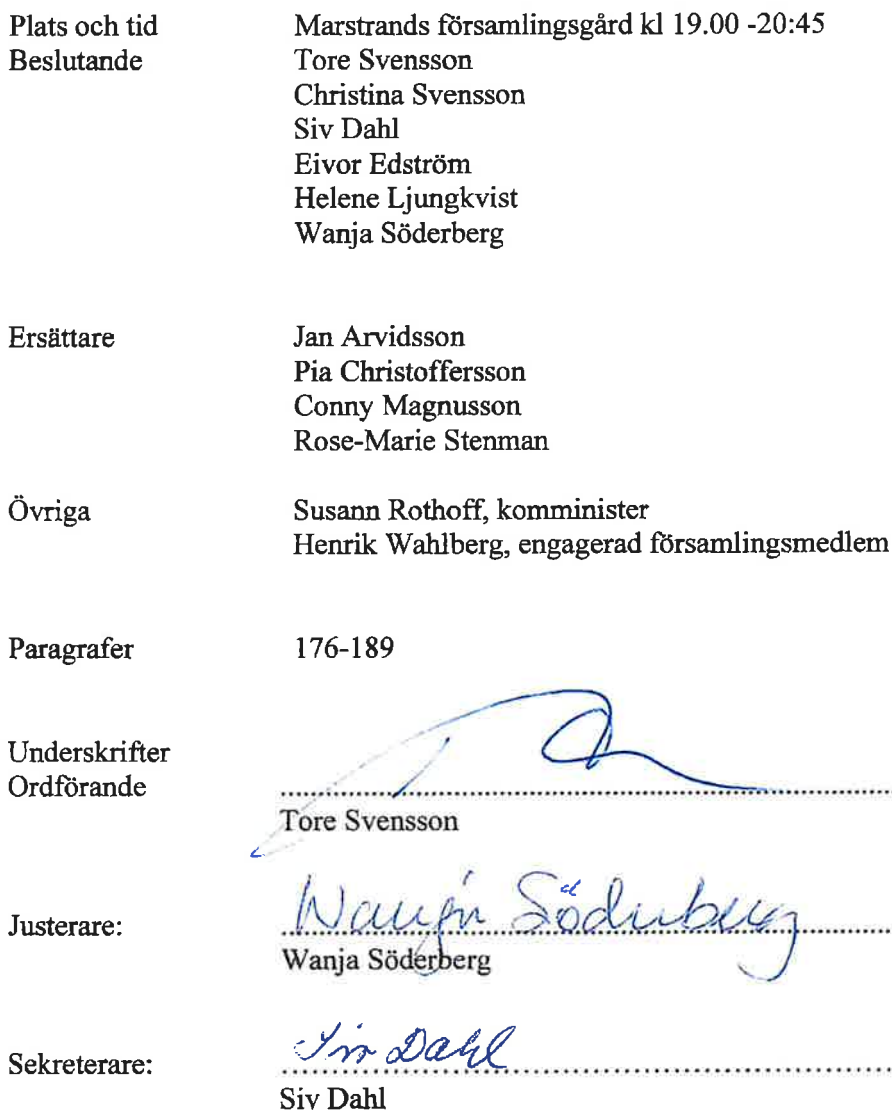 Plats och tid Marstrands församlingsgård kl 19.00 -20:45
Beslutande Tore Svensson
Christina Svensson
Siv Dahl
Eivor Edström
Helene Ljungkvist
Wanja Söderberg
Ersättare Jan Arvidsson
Pia Christoffersson
Conny Magnusson
Rose-Marie Stenman
Övriga Susann Rothoff, komminister
Henrik Wahlberg, engagerad församlingsmedlem
Paragrafer 176-189
Underskrifter
Ordförande
Tore Svensson
Wanja Söderberg
Justerare:
Wanja Söderberg
Siv Dahl
Sekreterare:
Siv Dahl